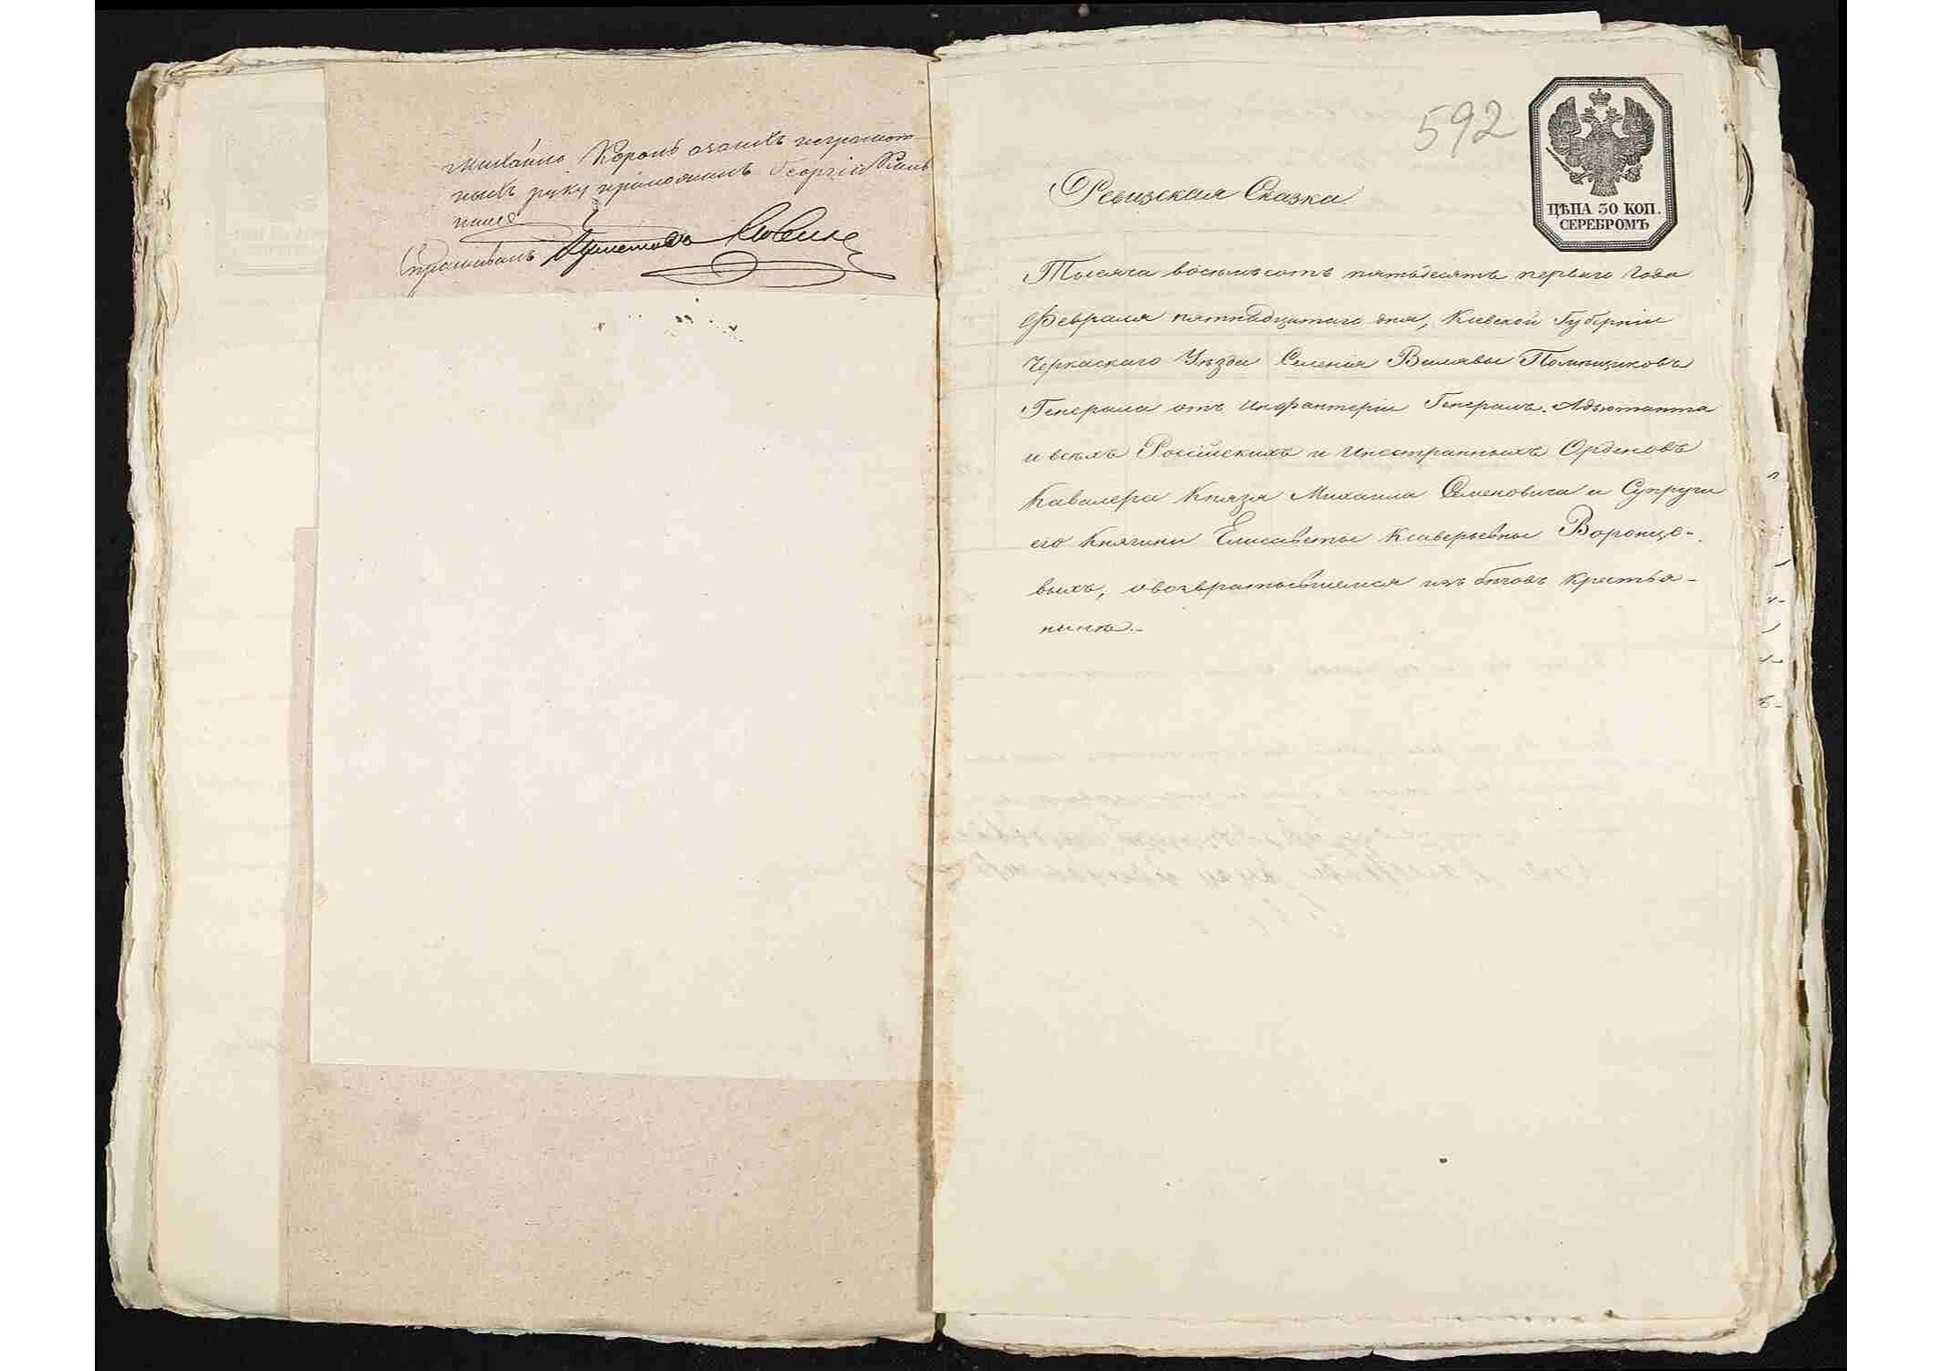 Михайло Король а за нихъ неграмот
ныхъ руку приложилъ Георгій
Спрашивалъ
592
ЦѢНА 30 КОП.
СЕРЕБРОМЪ
Ревизская Сказка
Тысяча восемьсотъ пятьдесятъ перваго года
Февраля пятнадцатаго дня, Кіевской Губерніи
Черкаскаго Уѣзда Селенія Валявы Помѣщиковъ
Генерала отъ Инфантеріи Генералъ-Адъютанта
и всѣхъ Россійскихъ и Иностранныхъ Орденовъ
Кавалера Князя Михаила Семеновича и Супруги
его Княгини Елисаветы Ксаверьевны Воронцо-
выхъ, о возвратившемся изъ бѣговъ крестья-
нинѣ.-